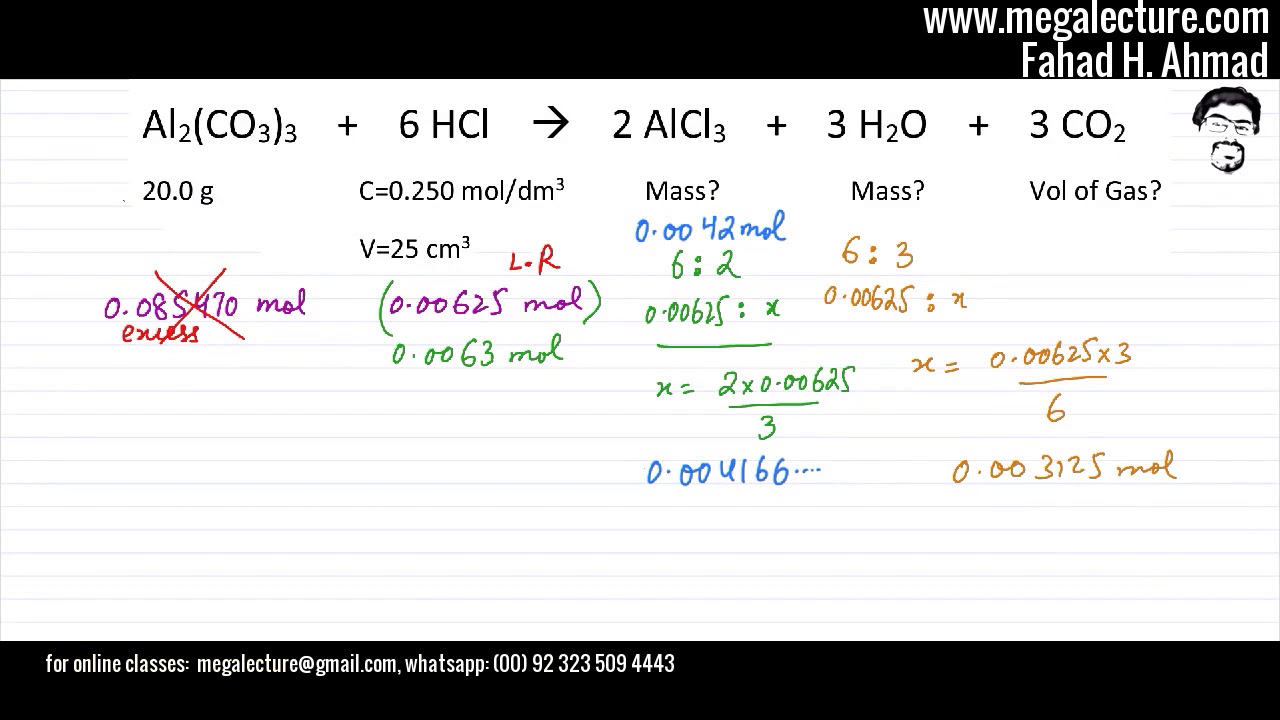 www.megalecture.com
Fahad H. Ahmad
Al₂(CO₃)₃ + 6 HCl → 2 AlCl₃ + 3 H₂O + 3 CO₂
20.0 g C=0.250 mol/dm³ Mass? Mass? Vol of Gas?
V=25 cm³
L.R
0.0042 mol
6 : 2
6 : 3
0.085470 mol
excess
(0.00625 mol)
0.0063 mol
0.00625 : x
0.00625 : x
x = 2 x 0.00625
3
x = 0.00625 x 3
6
0.004166....
0.003125 mol
for online classes: megalecture@gmail.com, whatsapp: (00) 92 323 509 4443